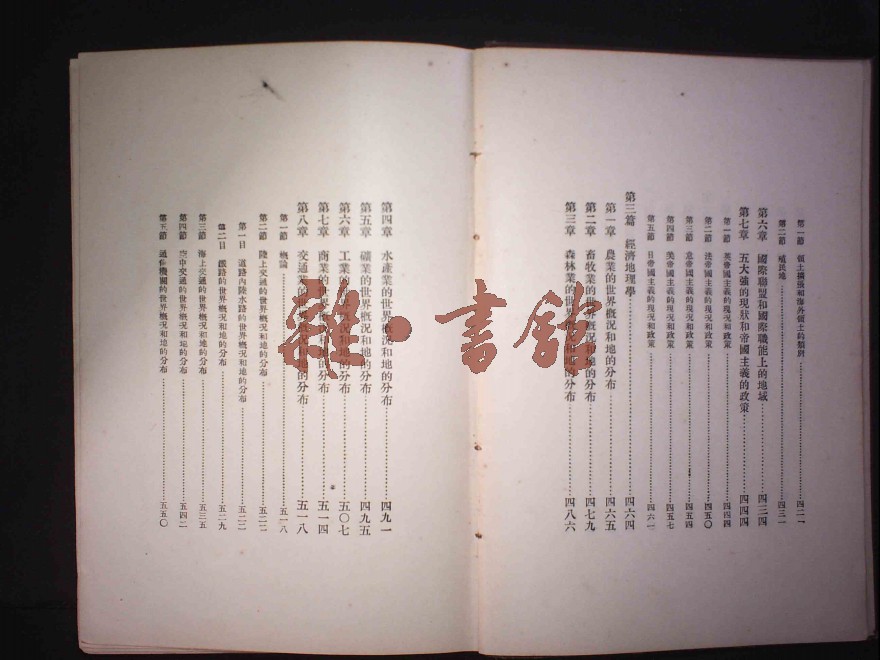 第一節 領土擴張和海外領土的類別……四二一
第二節 殖民地……四三一
第六章 國際聯盟和國際職能上的地域……四三四
第七章 五大強的現狀和帝國主義的政策……四四四
第一節 英帝國主義的現況和政策……四四四
第二節 法帝國主義的現況和政策……四五〇
第三節 意帝國主義的現況和政策……四五四
第四節 美帝國主義的現況和政策……四五七
第五節 日帝國主義的現況和政策……四六一
第三篇 經濟地理學……四六四
第一章 農業的世界概況和地的分布……四六五
第二章 畜牧業的世界概況和地的分布……四七九
第三章 森林業的世界概況和地的分布……四八六
第四章 水產業的世界概況和地的分布……四九一
第五章 礦業的世界概況和地的分布……四九五
第六章 工業的世界概況和地的分布……五〇七
第七章 商業的世界概況和地的分布……五一四
第八章 交通業的世界概況和地的分布……五一八
第一節 概論……五一八
第二節 陸上交通的世界概況和地的分布……五二二
第一目 道路內陸水路的世界概況和地的分布……五二二
第二目 鐵路的世界概況和地的分布……五二九
第三節 海上交通的世界概況和地的分布……五三五
第四節 空中交通的世界概況和地的分布……五四二
第五節 通信機關的世界概況和地的分布……五五〇
書館